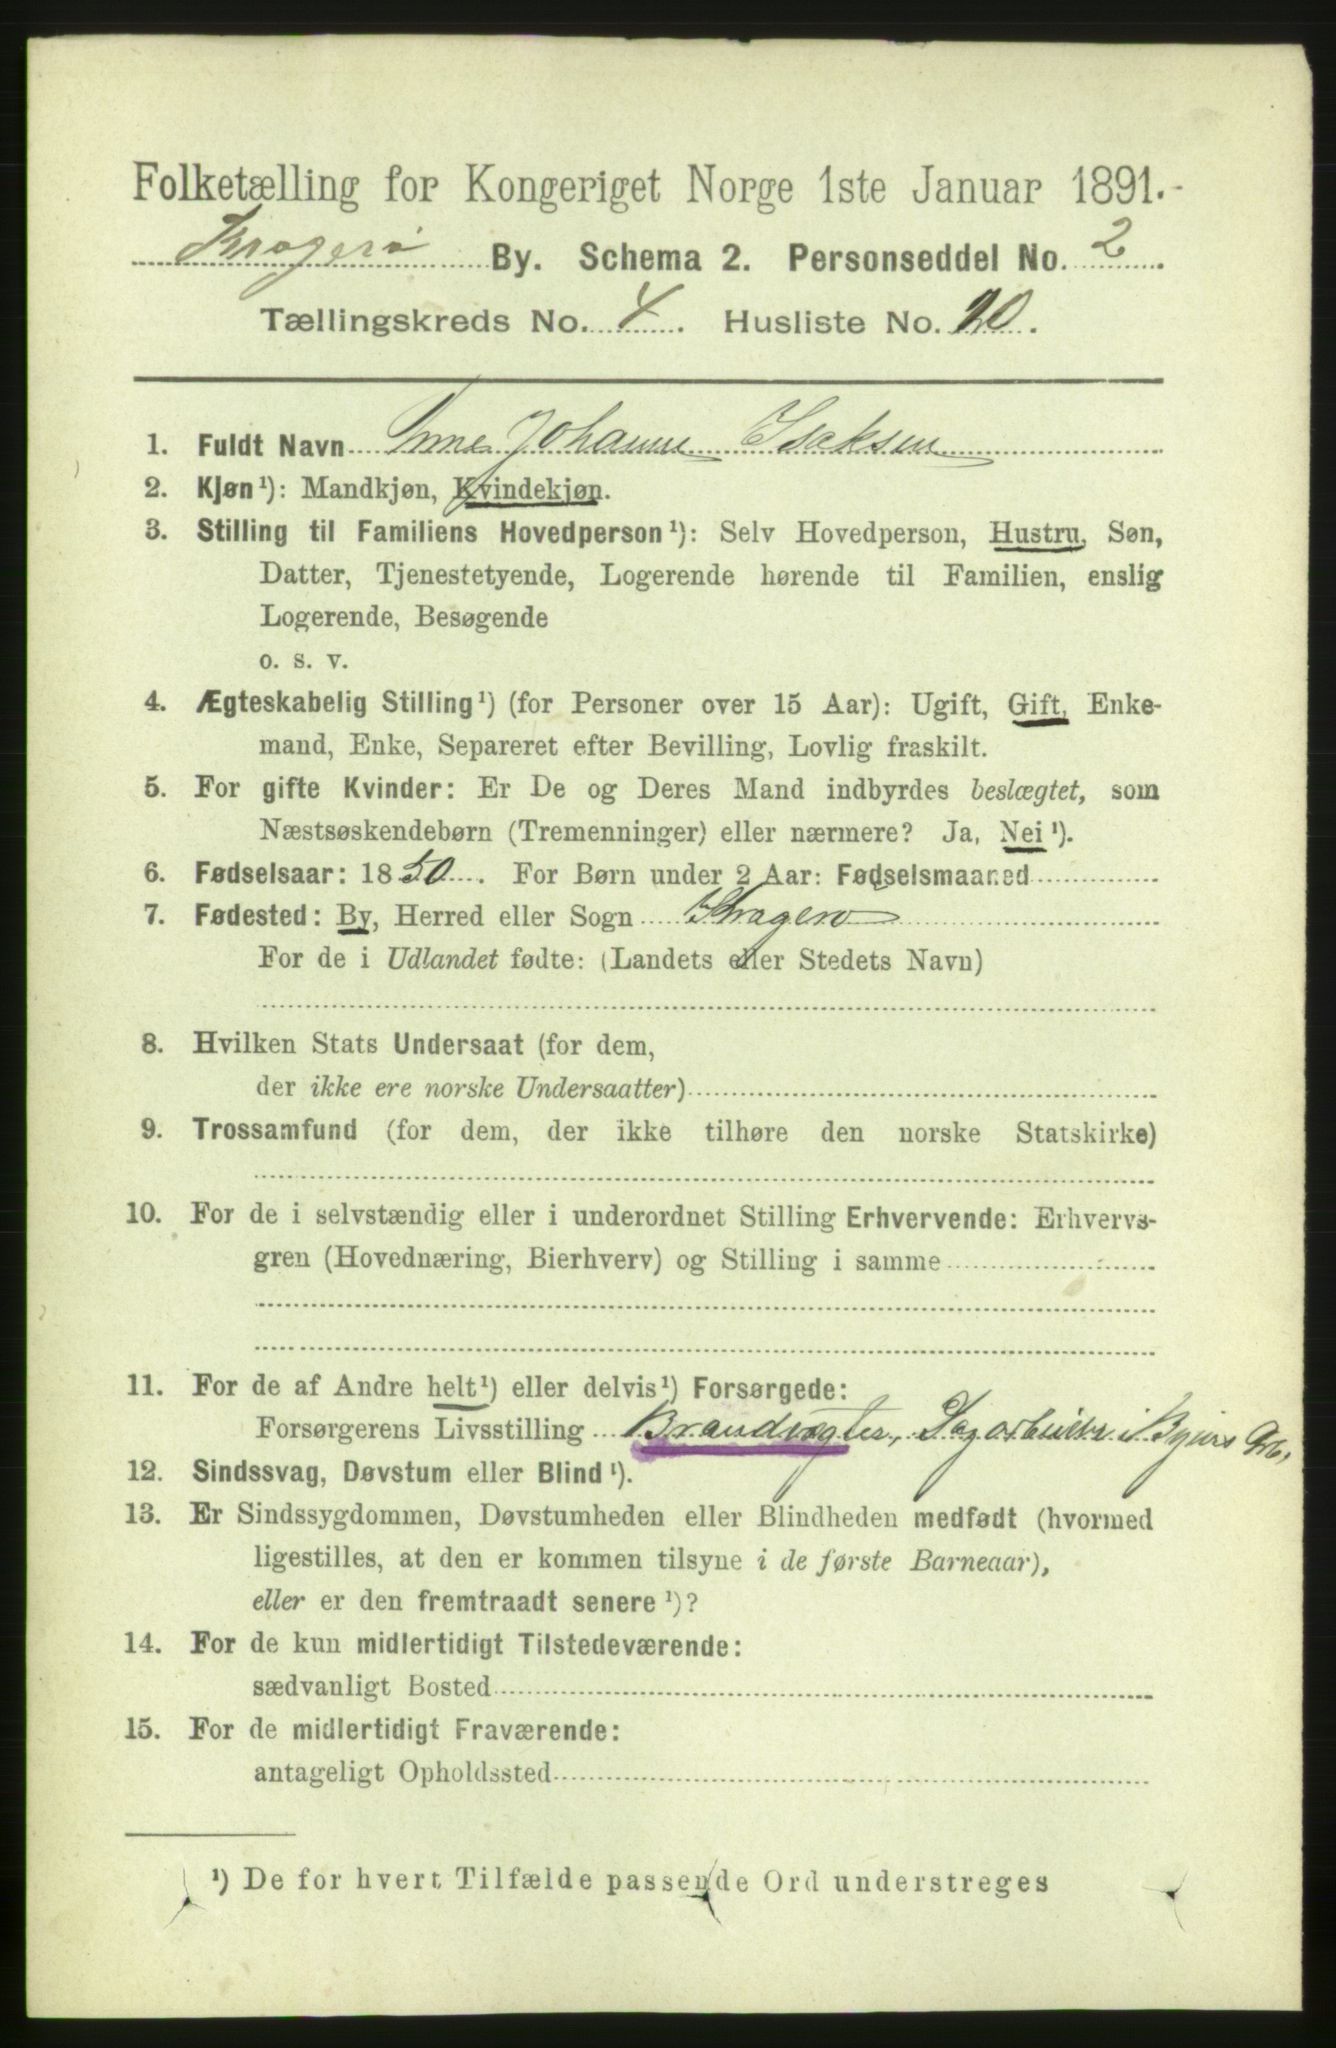 Folketælling for Kongeriget Norge 1ste Januar 1891.
Kragerø By. Schema 2. Personseddel No. 2.
Tællingskreds No. 4. Husliste No. 20.
1. Fuldt Navn Anne Johanne Isaksen
2. Kjøn¹): Mandkjøn, Kvindekjøn.
3. Stilling til Familiens Hovedperson¹): Selv Hovedperson, Hustru, Søn,
Datter, Tjenestetyende, Logerende hørende til Familien, enslig
Logerende, Besøgende
o. s. v.
4. Ægteskabelig Stilling¹) (for Personer over 15 Aar): Ugift, Gift, Enke-
mand, Enke, Separeret efter Bevilling, Lovlig fraskilt.
5. For gifte Kvinder: Er De og Deres Mand indbyrdes beslægtet, som
Næstsøskendebørn (Tremenninger) eller nærmere? Ja, Nei¹).
6. Fødselsaar: 1850. For Børn under 2 Aar: Fødselsmaaned
7. Fødested: By, Herred eller Sogn Kragerø
For de i Udlandet fødte: (Landets eller Stedets Navn)
8. Hvilken Stats Undersaat (for dem,
der ikke ere norske Undersaatter)
9. Trossamfund (for dem, der ikke tilhøre den norske Statskirke)
10. For de i selvstændig eller i underordnet Stilling Erhvervende: Erhvervs-
gren (Hovednæring, Bierhverv) og Stilling i samme
11. For de af Andre helt¹) eller delvis¹) Forsørgede:
Forsørgerens Livsstilling Brandvogter, Dagarbeider i Byens Arb.
12. Sindssvag, Døvstum eller Blind¹).
13. Er Sindssygdommen, Døvstumheden eller Blindheden medfødt (hvormed
ligestilles, at den er kommen tilsyne i de første Barneaar),
eller er den fremtraadt senere¹)?
14. For de kun midlertidigt Tilstedeværende:
sædvanligt Bosted
15. For de midlertidigt Fraværende:
antageligt Opholdssted
¹) De for hvert Tilfælde passende Ord understreges